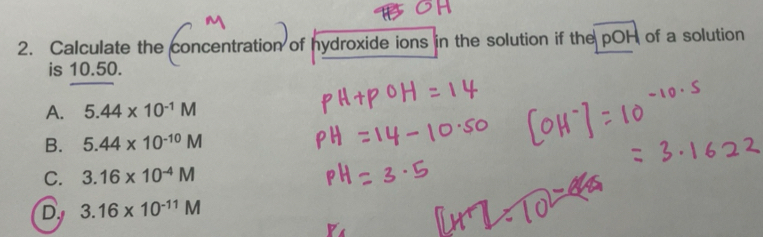 M
OH
2. Calculate the concentration of hydroxide ions in the solution if the pOH of a solution
is 10.50.
A. 5.44 x 10⁻¹ M
B. 5.44 x 10⁻¹⁰ M
C. 3.16 x 10⁻⁴ M
D. 3.16 x 10⁻¹¹ M
pH+pOH = 14
pH = 14 - 10.50
pH = 3.5
[OH⁻] = 10⁻¹⁰·⁵
= 3.1622
[H⁺] = 10